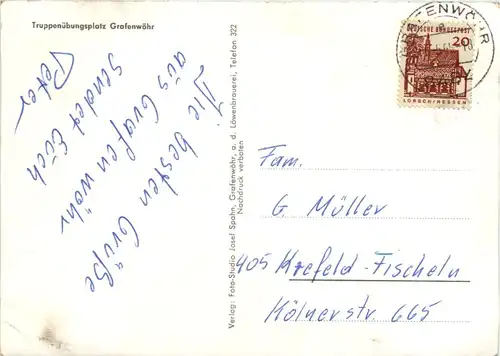 Truppenübungsplatz Grafenwöhr
Die besten Grüße
aus Grafenwöhr
sendet Euch
Peter
Verlag: Foto-Studio Josef Spahn, Grafenwöhr, a. d. Löwenbrauerei, Telefon 322
Nachdruck verboten
GRAFENWÖHR
DEUTSCHE BUNDESPOST
20
LORSCH/HESSEN
Fam.
G. Müller
405 Krefeld-Fischeln
Kölnerstr. 665